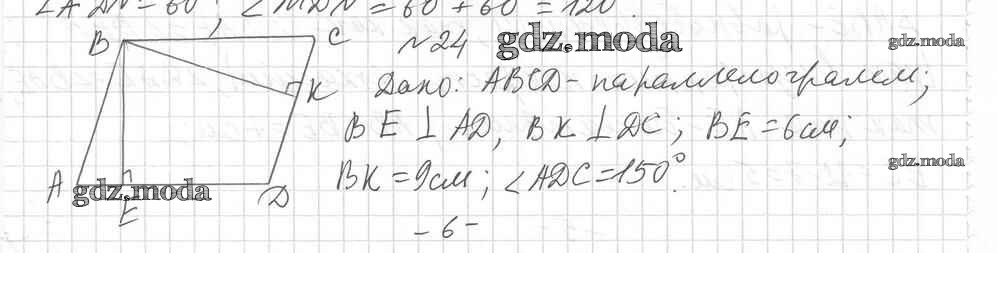 ∠ADN = 60°; ∠MDN = 60° + 60° = 120°.
B C
№24 gdz.moda
gdz.moda
K
Дано: ABCD - параллелограмм;
BE ⊥ AD, BK ⊥ DC; BE = 6см;
gdz.moda
BK = 9см; ∠ADC = 150°.
A gdz.moda D
E
- 6 -